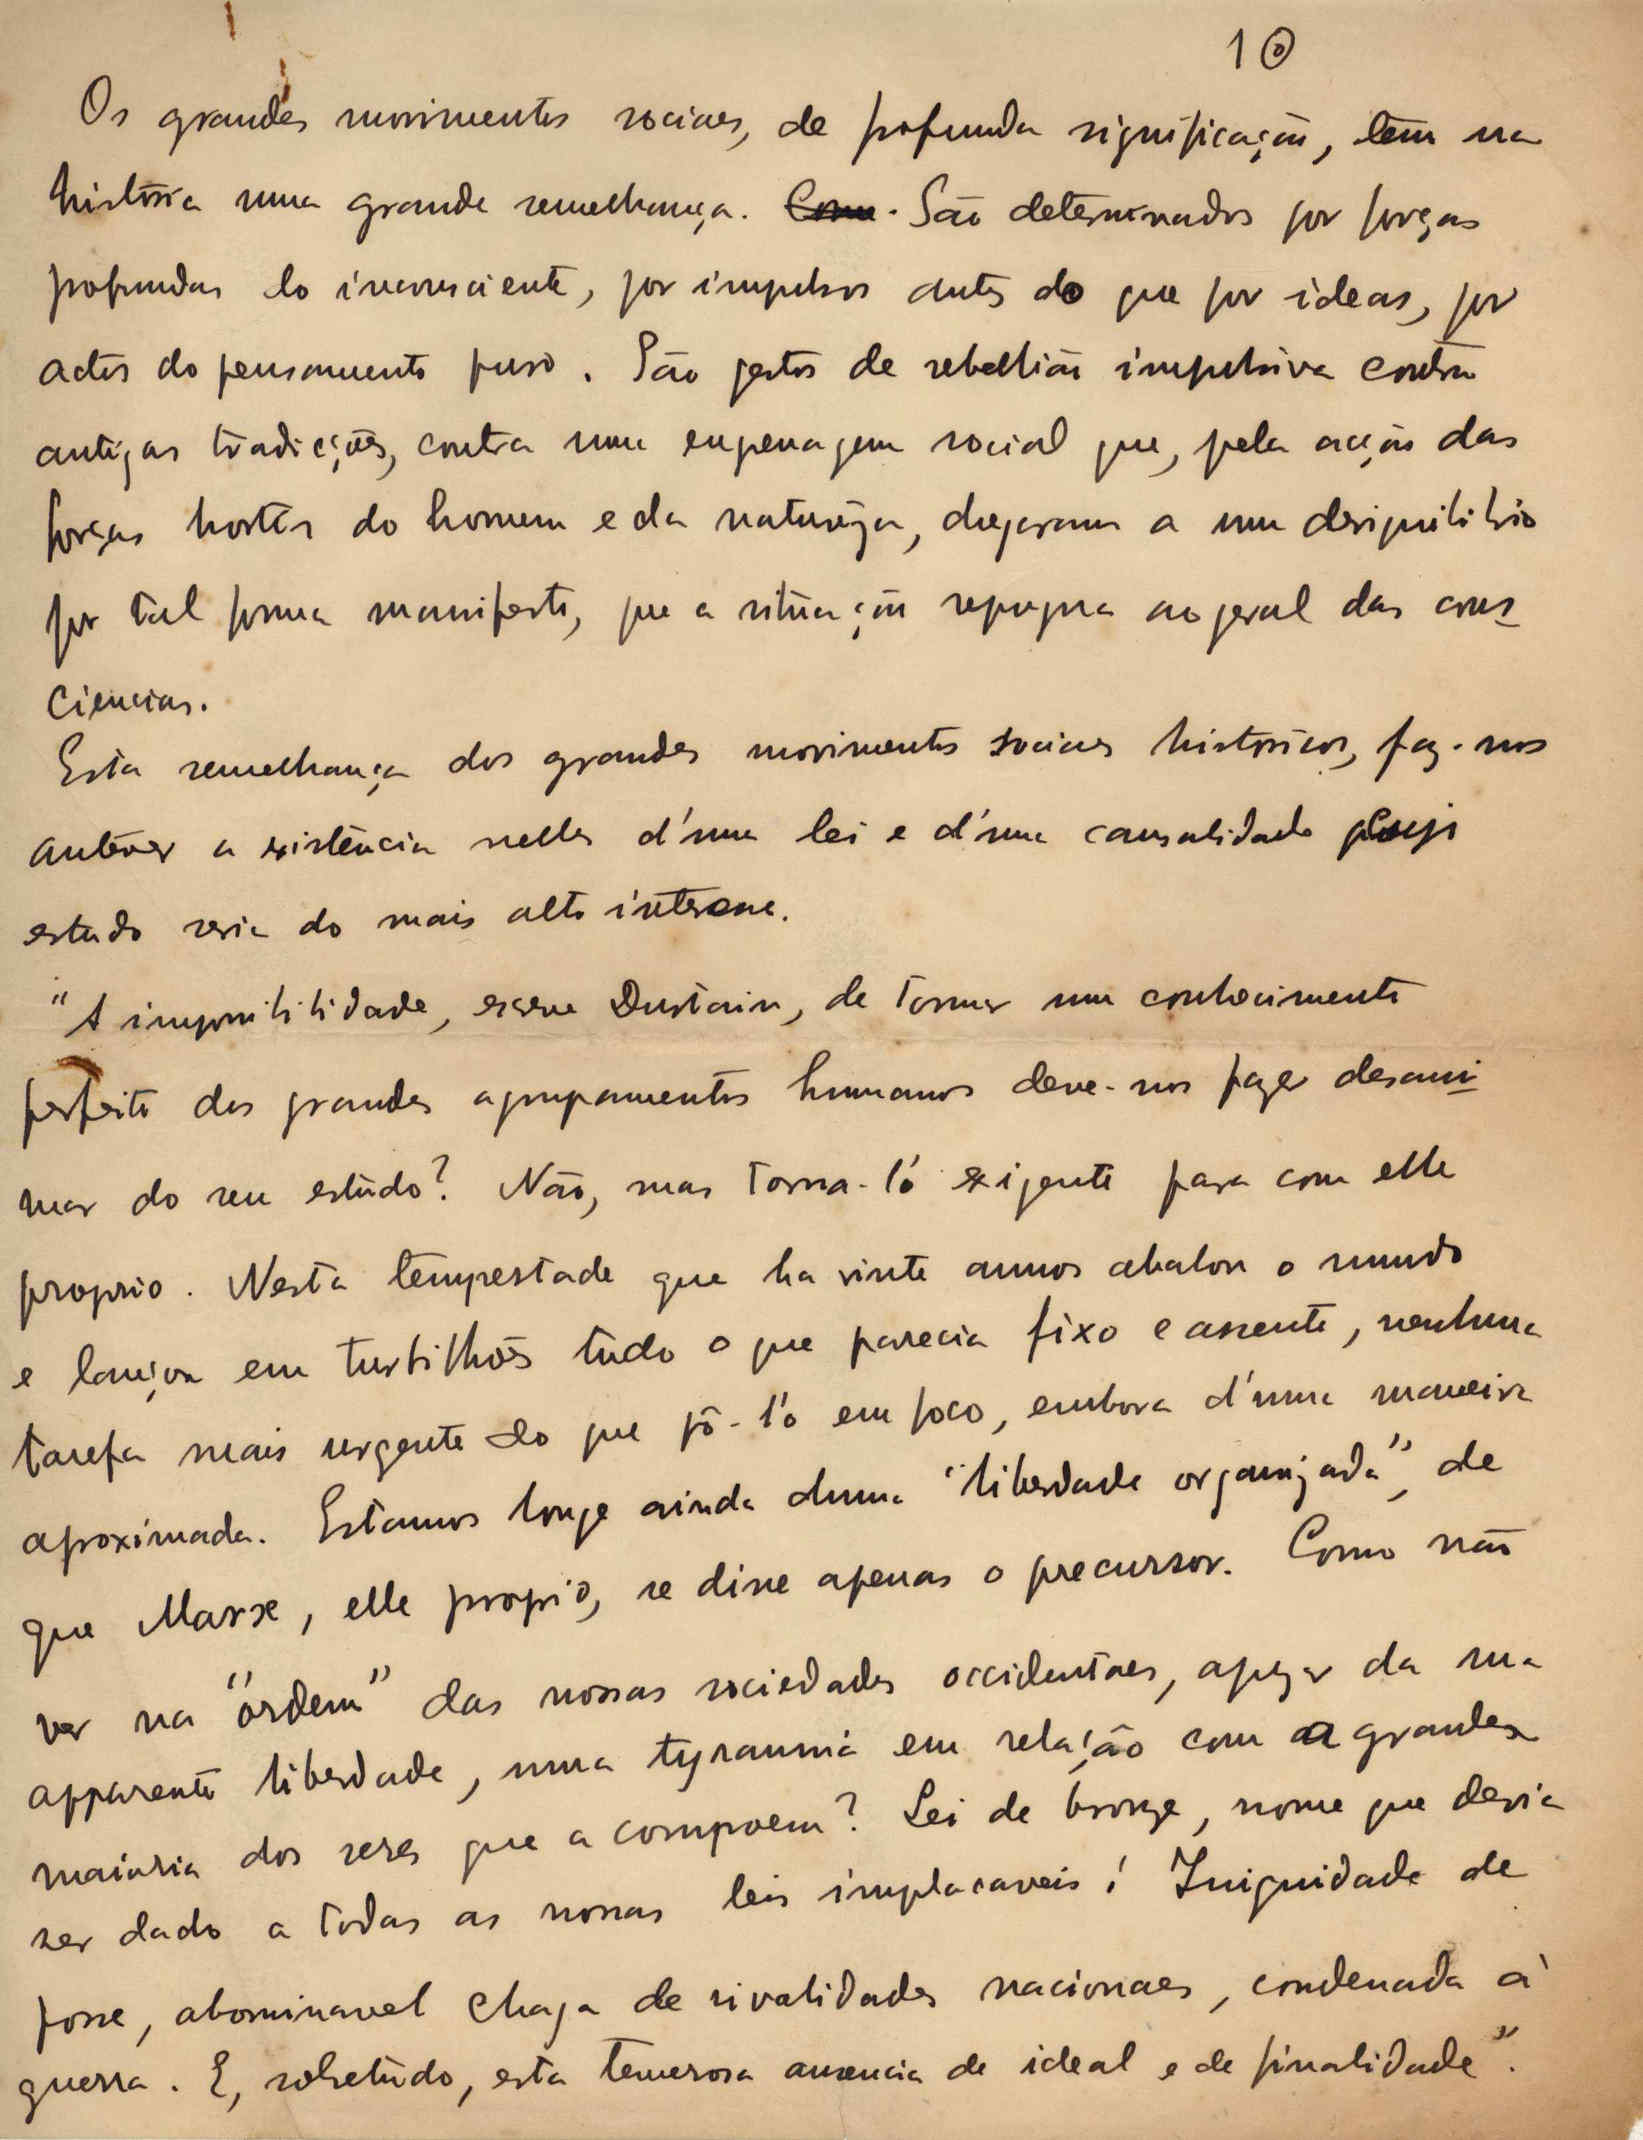 10
Os grandes movimentos sociaes, de profunda significação, têm na
história uma grande semelhança. Como. São determinados por forças
profundas do inconsciente, por impulsos antes do que por ideas, por
actos do pensamento puro. São gestos de rebellião impulsiva contra
antigas tradições, contra uma engenagem social que, pela acção das
forças hostis do homem e da natureza, chegaram a um desiquilibrio
por tal forma manifesto, que a situação repugna ao geral das cons-
ciencias.
Esta semelhança dos grandes movimentos sociaes historicos, faz-nos
antever a existência nelles d'uma lei e d'uma causalidade cujo
estudo seria do mais alto interesse.
"A impossibilidade, escreve Durtain, de tomar um conhecimento
perfeito dos grandes agrupamentos humanos deve-nos fazer desani-
mar do seu estudo? Não, mas torna-l'o exigente para com elle
proprio. Nesta tempestade que ha vinte annos abalou o mundo
e lançou em turbilhões tudo o que parecia fixo e assente, nenhuma
tarefa mais urgente do que pô-l'o em foco, embora d'uma maneira
aproximada. Estamos longe ainda duma "liberdade organizada", de
que Marx, elle proprio, se disse apenas o precursor. Como não
ver na "ordem" das nossas sociedades occidentaes, apezar da sua
apparente liberdade, uma tyrannia em relação com a grande
maioria dos seres que a compoem? Lei de bronze, nome que devia
ser dado a todas as nossas leis implacaveis! Iniquidade de
posse, abominavel chaga de rivalidades nacionaes, condenada á
guerra. E, sobretudo, esta temerosa ausencia de ideal e de finalidade".